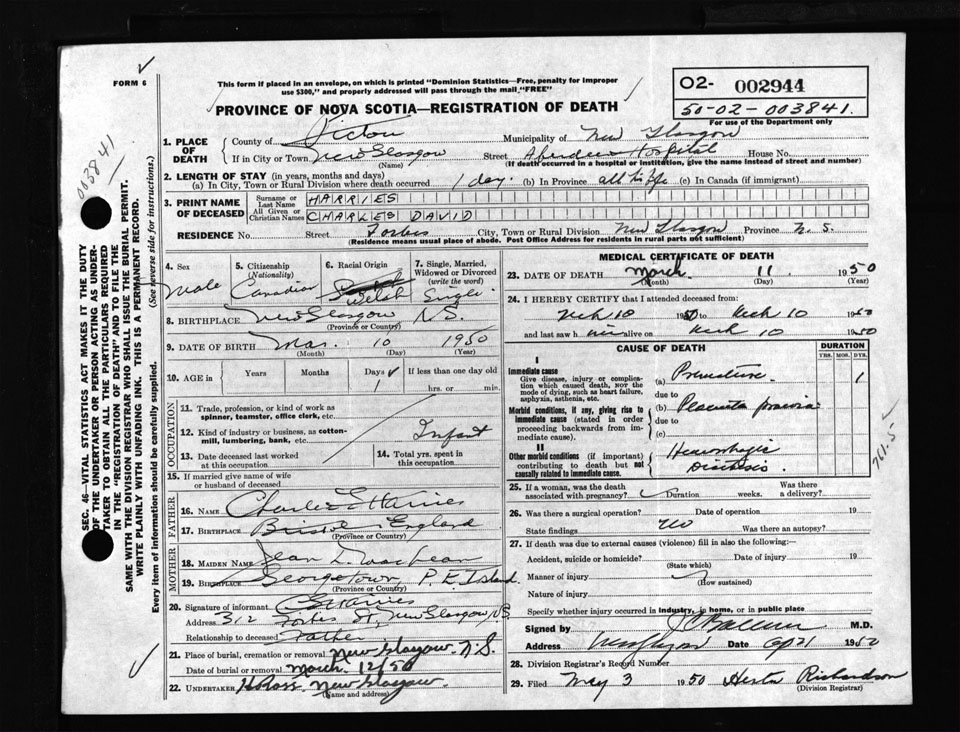 FORM 6
This form if placed in an envelope, on which is printed "Dominion Statistics—Free, penalty for improper
use $300," and properly addressed will pass through the mail "FREE"
PROVINCE OF NOVA SCOTIA—REGISTRATION OF DEATH
O2- 002944
50-02-003841.
For use of the Department only
003841
SEC. 46—VITAL STATISTICS ACT MAKES IT THE DUTY
OF THE UNDERTAKER OR PERSON ACTING AS UNDER-
TAKER TO OBTAIN ALL THE PARTICULARS REQUIRED
IN THE "REGISTRATION OF DEATH" AND TO FILE THE
SAME WITH THE DIVISION REGISTRAR WHO SHALL ISSUE THE BURIAL PERMIT.
WRITE PLAINLY WITH UNFADING INK. THIS IS A PERMANENT RECORD.
Every item of information should be carefully supplied. (See reverse side for instructions.)
1. PLACE OF DEATH
County of Pictou Municipality of New Glasgow
If in City or Town New Glasgow Street Aberdeen Hospital House No.
(Name) (If death occurred in a hospital or institution, give the name instead of street and number)
2. LENGTH OF STAY (in years, months and days)
(a) In City, Town or Rural Division where death occurred 1 day. (b) In Province all his life (c) In Canada (if immigrant)
3. PRINT NAME OF DECEASED
Surname or Last Name HARRIES
All Given or Christian Names CHARLES DAVID
RESIDENCE No. Street Forbes City, Town or Rural Division New Glasgow Province N. S.
(Residence means usual place of abode. Post Office Address for residents in rural parts not sufficient)
4. Sex Male
5. Citizenship (Nationality) Canadian
6. Racial Origin Welsh
7. Single, Married, Widowed or Divorced (write the word) Single
8. BIRTHPLACE New Glasgow N.S.
(Province or Country)
9. DATE OF BIRTH Mar. 10 1950
(Month) (Day) (Year)
10. AGE in Years Months Days If less than one day old
1 hrs. or min.
OCCUPATION
11. Trade, profession, or kind of work as
spinner, teamster, office clerk, etc.
12. Kind of industry or business, as cotton-
mill, lumbering, bank, etc. Infant
13. Date deceased last worked
at this occupation
14. Total yrs. spent in
this occupation
15. If married give name of wife
or husband of deceased
FATHER
16. Name Charlie E Harries
17. BIRTHPLACE Bristol England
(Province or Country)
MOTHER
18. MAIDEN NAME Jean L. MacLean
19. BIRTHPLACE Georgetown, P. E. Island
(Province or Country)
20. Signature of informant C E Harries
Address 312 Forbes St, New Glasgow NS
Relationship to deceased Father
21. Place of burial, cremation or removal New Glasgow N.S.
Date of burial or removal March 12/50
22. UNDERTAKER H Ross. New Glasgow.
(Name and address)
MEDICAL CERTIFICATE OF DEATH
23. DATE OF DEATH March 11 1950
(Month) (Day) (Year)
24. I HEREBY CERTIFY that I attended deceased from
10 1950 to 10 1950
and last saw him alive on 10 1950
CAUSE OF DEATH
DURATION
YRS. MOS. DYS.
I
Immediate cause
Give disease, injury or complica-
tion which caused death, NOT the
mode of dying, such as heart failure,
asphyxia, asthenia, etc.
(a) Premature. 1
due to
Morbid conditions, if any, giving rise to
immediate cause (stated in order
proceeding backwards from im-
mediate cause).
(b) Placenta praevia
due to
(c)
II
Other morbid conditions (if important)
contributing to death but not
causally related to immediate cause.
Hemorrhagic
761.5
25. If a woman, was the death
associated with pregnancy? Duration weeks. Was there
a delivery?
26. Was there a surgical operation? Date of operation 19
State findings No Was there an autopsy?
27. If death was due to external causes (violence) fill in also the following:—
Accident, suicide or homicide? Date of injury 19
(State which)
Manner of injury
(How sustained)
Nature of injury
Specify whether injury occurred in industry, in home, or in public place
Signed by M.D.
Address Date 1950
28. Division Registrar's Record Number
29. Filed May 3 1950 Richardson
(Division Registrar)